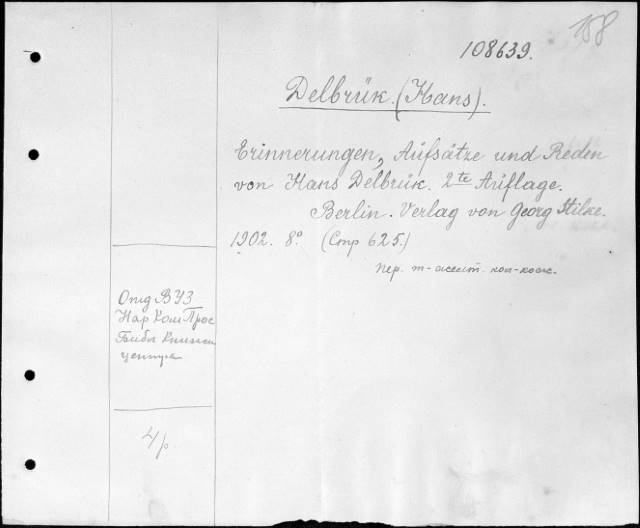 188
108639.
Delbrük. (Hans).
Erinnerungen, Aufsätze und Reden
von Hans Delbrük. 2te Auflage.
Berlin. Verlag von Georg Stilke.
1902. 8º. (Стр 625.)
пер.
Отд ВУЗ
Нар Ком Прос
Библ Книжн
центра
4 р